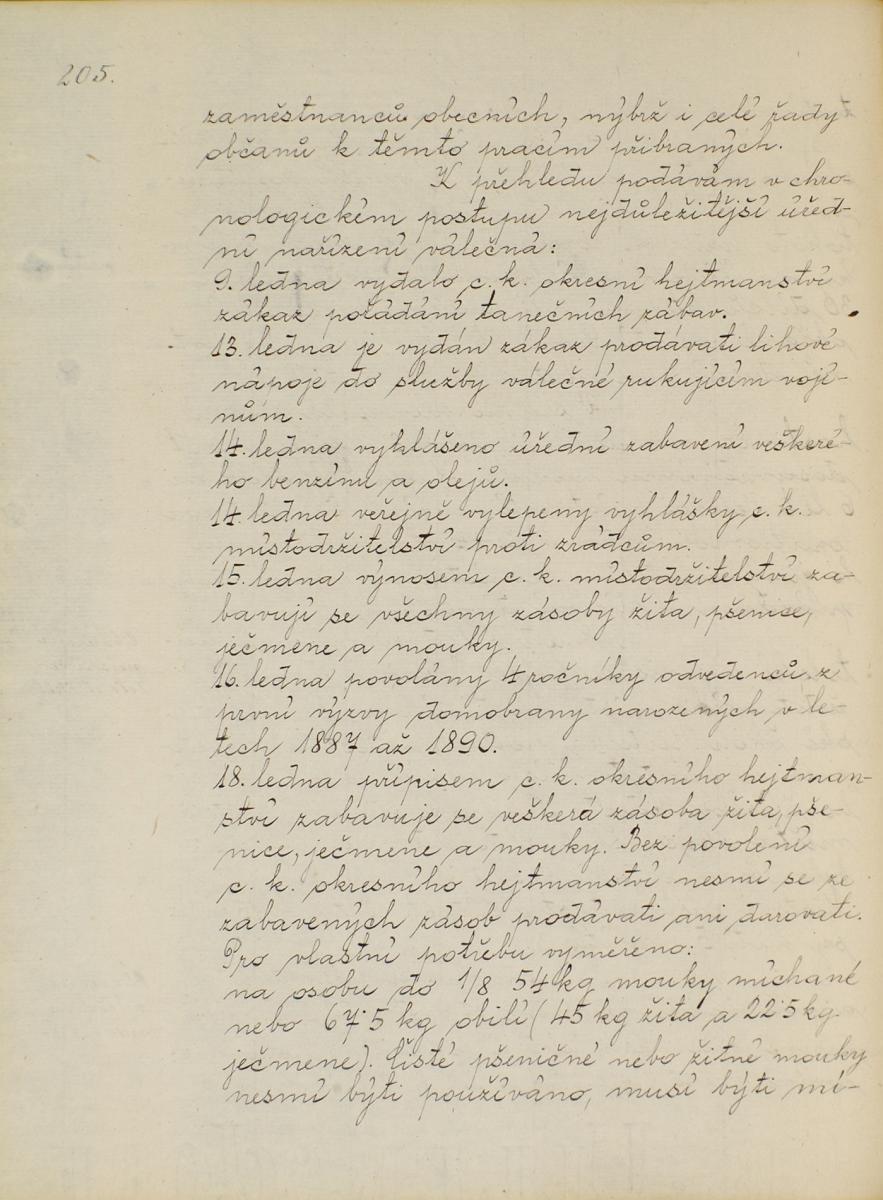 205.
zaměstnanců obecních, nýbrž i celé řady
občanů k těmto pracím přibraných.
K přehledu podávám v chro-
nologickém postupu nejdůležitější úřed-
ní nařízení válečná:
9. ledna vydalo c. k. okresní hejtmanství
zákaz pořádání tanečních zábav.
13. ledna je vydán zákaz prodávati lihové
nápoje do služby válečné rukujícím vojí-
nům.
14. ledna vyhlášeno úřední zabavení veškeré-
ho benzínu a olejů.
14. ledna veřejně vylepeny vyhlášky c. k.
místodržitelství proti zrádcům.
15. ledna výnosem c. k. místodržitelství za-
bavují se všechny zásoby žita, pšenice,
ječmene a mouky.
16. ledna povolány 4 ročníky odvedenců z
první výzvy domobrany narozených v le-
tech 1887 až 1890.
18. ledna přípisem c. k. okresního hejtman-
ství zabavuje se veškerá zásoba žita, pše-
nice, ječmene a mouky. Bez povolení
c. k. okresního hejtmanství nesmí se ze
zabavených zásob prodávati ani darovati.
Pro vlastní potřebu vyměřeno:
na osobu do 1/8 54 kg mouky míchané
nebo 67·5 kg obilí (45 kg žita a 22·5 kg
ječmene). Čisté pšeničné nebo žitné mouky
nesmí býti používáno, musí býti mí-